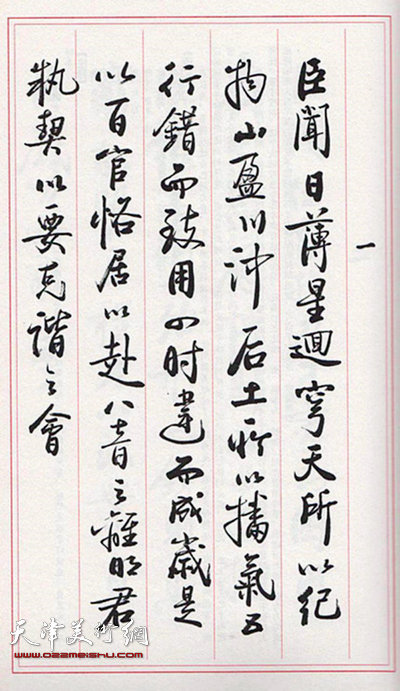 一
臣聞日薄星迴穹天所以紀
物山盈川沖后土所以播氣五
行錯而致用四时違而成歲是
以百官恪居以赴八音之離明君
執契以要克諧之會
天津美術網
www.022meishu.com